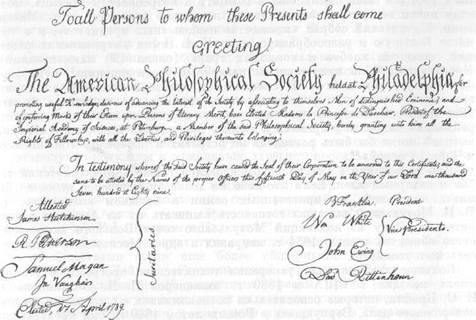 To all Persons to whom these Presents shall come
Greeting
The American Philosophical Society held at Philadelphia, for
promoting useful Knowledge, desirous of advancing the Interest of the Society by associating to themselves Men of distinguished Eminence, and
of conferring Marks of their Esteem upon Persons of literary Merit, have elected Madame la Princesse de Daschaw, President of the
Imperial Academy of Sciences, at Petersburg a Member of the said Philosophical Society, hereby granting unto him all the
Rights of Fellowship, with all the Liberties and Privileges thereunto belonging.
In testimony whereof the said Society have caused the Seal of their Corporation to be annexed to this Certificate, and the
same to be attested by the Names of the proper Officers this fifteenth Day of May in the Year of our Lord one thousand
seven hundred & Eighty nine.
Attested
James Hutchinson
R. Patterson
Samuel Magaw
Jn Vaughan
Secretaries
Elected, 17 April 1789.
B Franklin President
Wm White
John Ewing
David Rittenhouse
Vice Presidents.